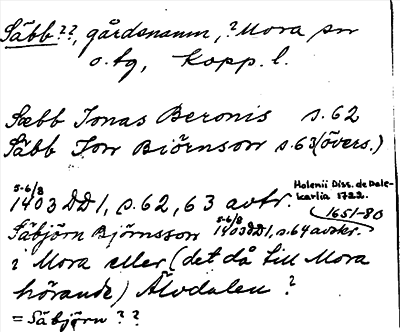 Säbb??, gårdsnamn, ? Mora sn
o. tg, Kopp. l.
Sæbb Jonas Beronis s. 62
Säbb Jon Biörnson s. 63 (övers.)
5-6/8
1403 DD1, s. 62, 63 avtr.
Holenii Diss. de Dale-
karlia 1722.
1651-80
Säbjörn Björnsson 5-6/8 1403 DD1, s. 64 avskr.
i Mora eller (det då till Mora
hörande) Älvdalen?
= Säbjörn??